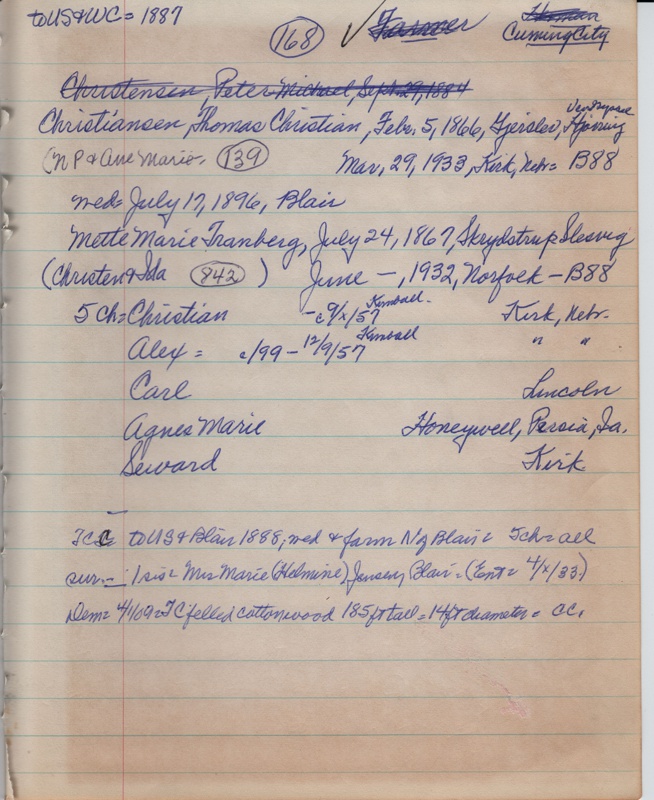 to US & WC = 1887
168 ✓ Farmer Herman
Cuming City
Christensen, Peter Michael, Sept. 29, 1884
Christiansen, Thomas Christian, Febr. 5, 1866, Gjerslev, Hjöring
(N P & Ane Marie. 139) Mar, 29, 1933, Kirk, Nebr= B88
wed= July 17, 1896, Blair
Mette Marie Tranberg, July 24, 1867, Skrydstrup Slesvig
(Christen & Ida 842) June -, 1932, Norfolk - B88
5 ch= Christian - c9/x/57 Kimball. Kirk, Nebr-
Alex = c/99 - 12/9/57 Kimball " "
Carl Lincoln
Agnes Marie Honeywell, Persia, Ia.
Seward Kirk
TCC= to US & Blair 1888; wed & farm N of Blair = 5 ch = all
sur. - 1 sis = Mrs Marie (Helmine) Jensen, Blair = (Ent = 4/x/33)
Dem= 4/1/09 = TC felled cottonwood 185 ft tall = 14 ft diameter = CC.